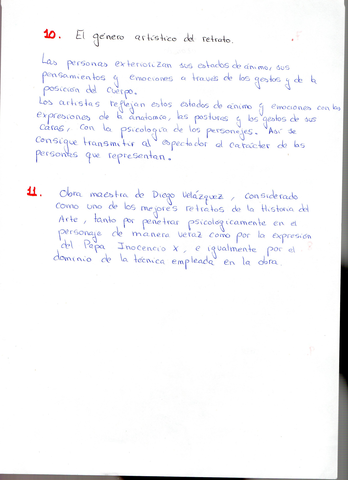 10. El género artístico del retrato.
Las personas exteriorizan sus estados de ánimo, sus
pensamientos y emociones a traves de los gestos y de la
posición del cuerpo.
Los artistas reflejan estos estados de ánimo y emociones con las
expresiones de la anatomía, las posturas y los gestos de sus
caras, con la psicología de los personajes. Así se
consigue transmitir al espectador al carácter de las
personas que representan.
11. Obra maestra de Diego Velázquez, considerado
como uno de los mejores retratos de la Historia del
Arte, tanto por penetrar psicologicamente en el
personaje de manera veraz como por la expresion
del Papa Inocencio X, e igualmente por el
dominio de la técnica empleada en la obra